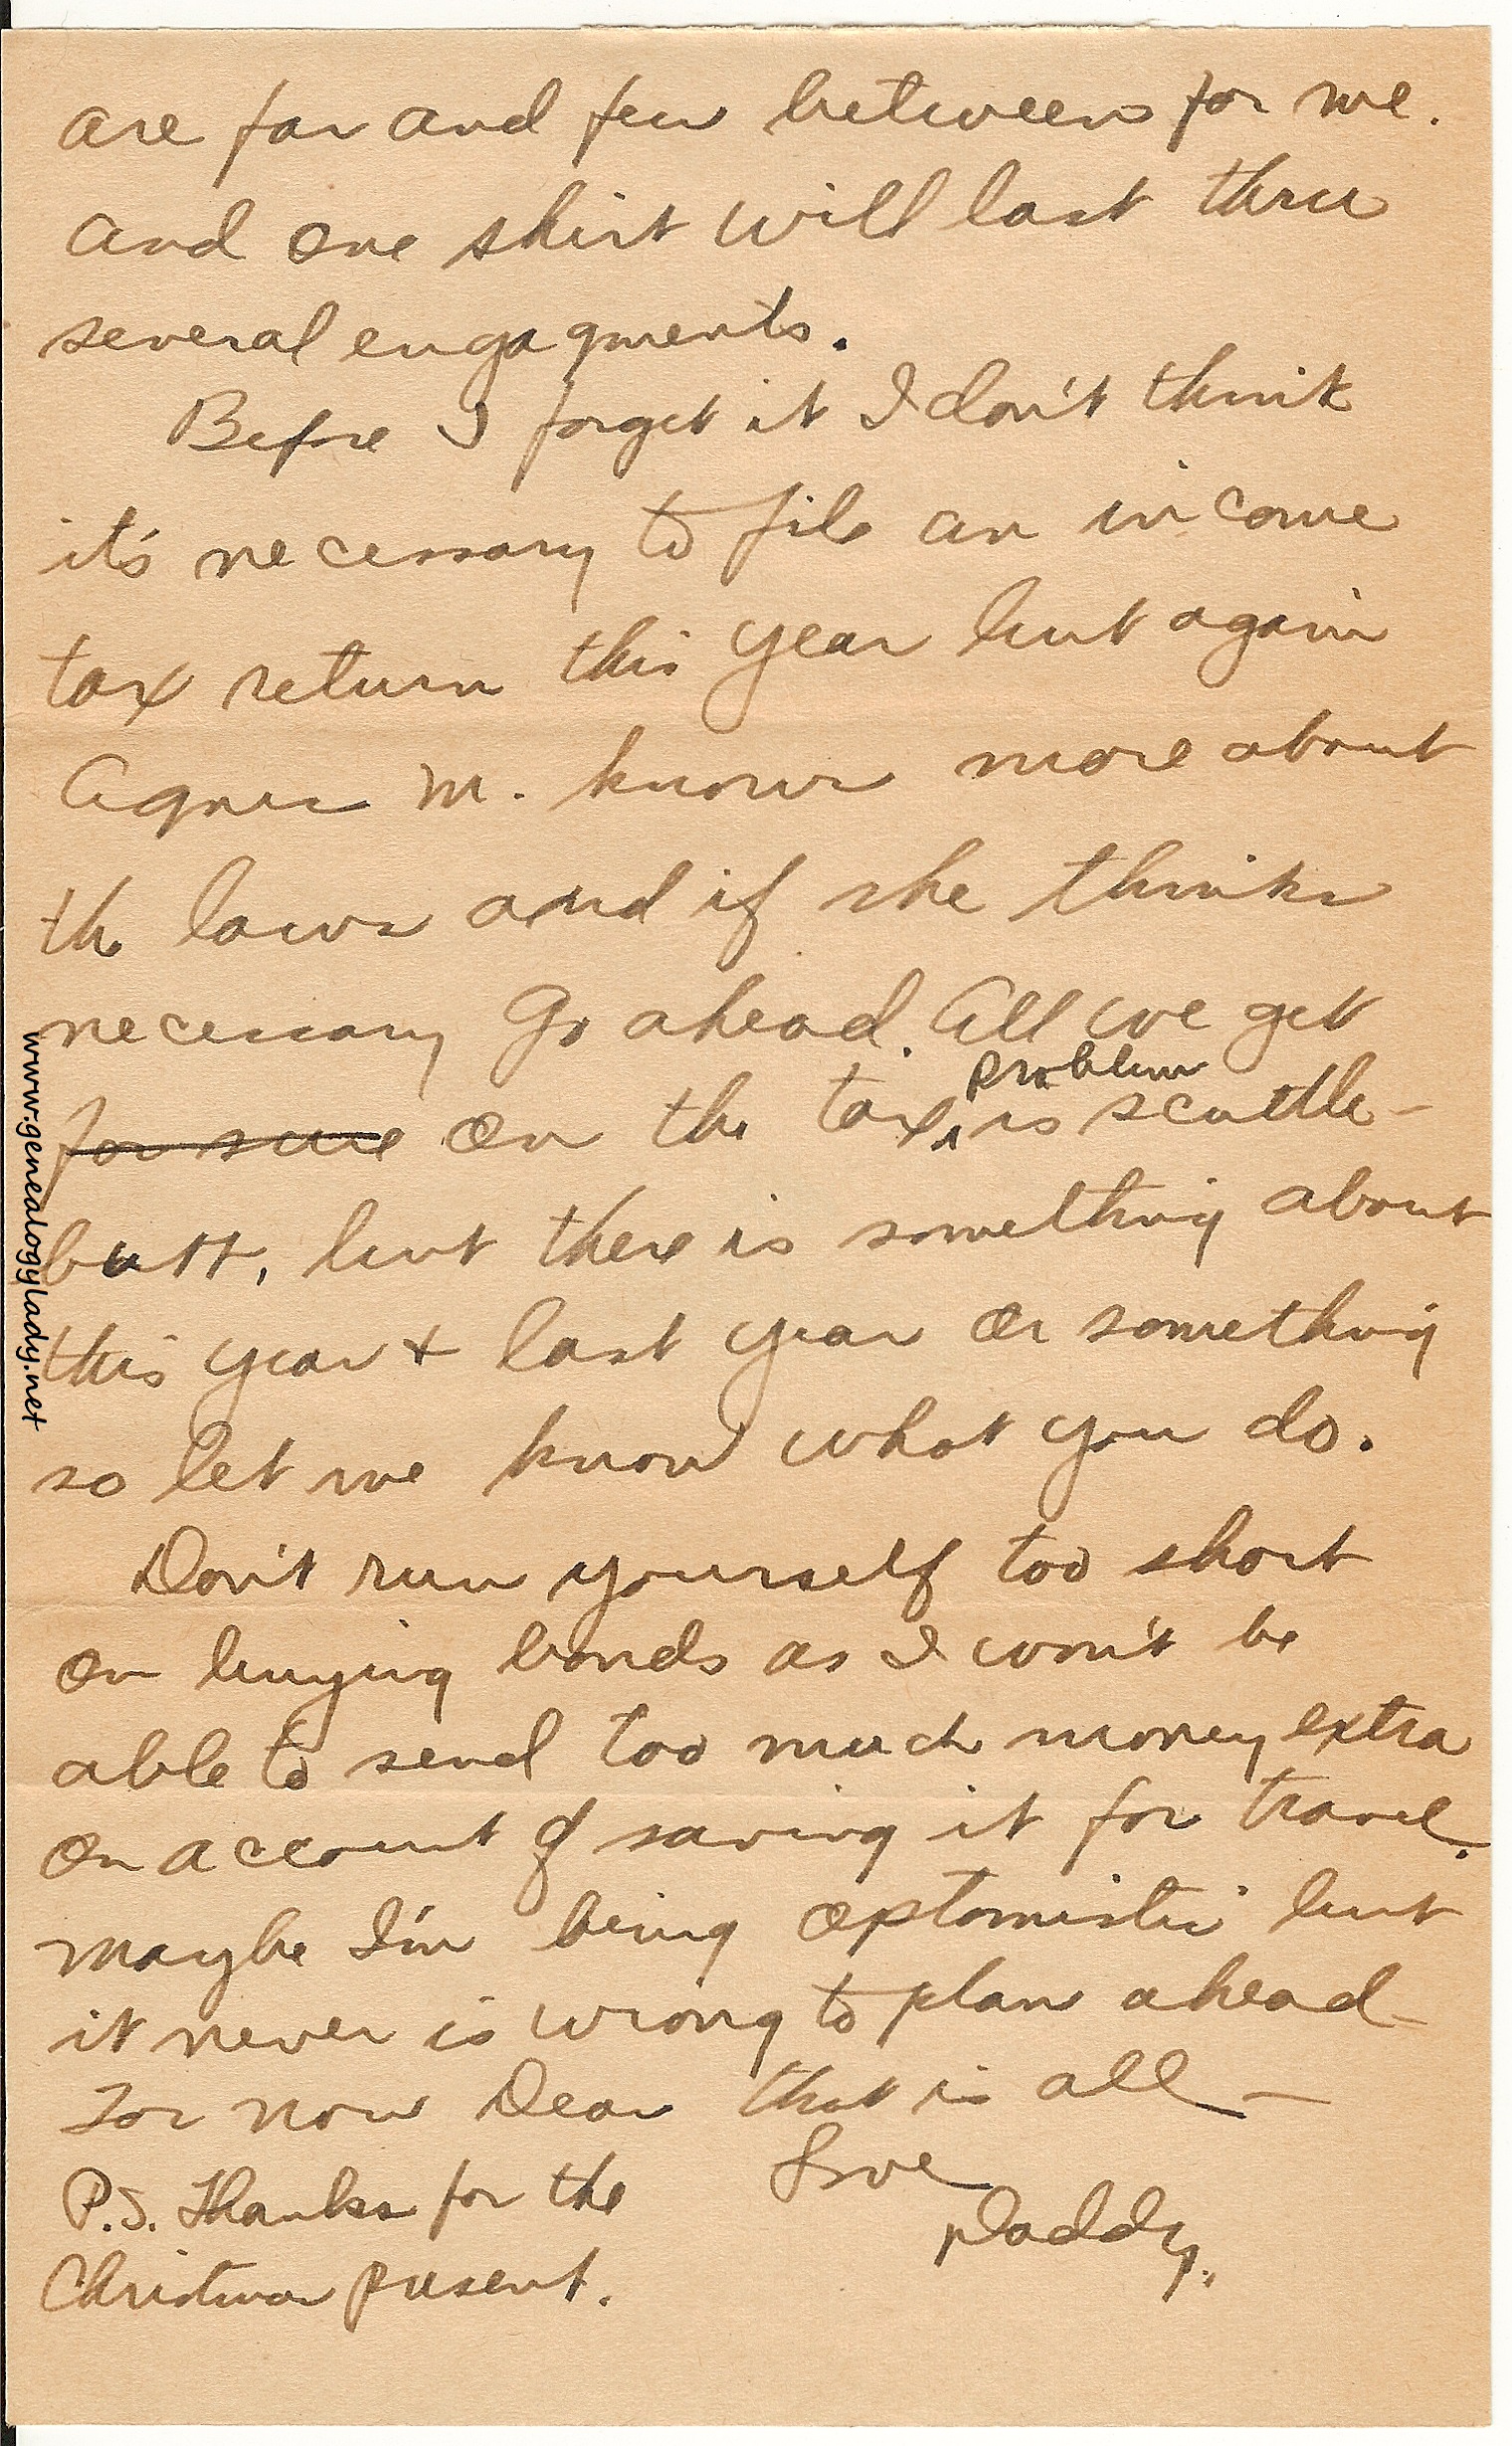 are far and few between for me.
and one shirt will last thru
several engagments.
Before I forget it I don't think
it's necessary to file an income
tax return this year but again
Agnes M. knows more about
the laws and if she thinks
necessary go ahead. All we get
problem
for sure on the tax is scuttle-
butt, but there is something about
this year + last year or something
so let me know what you do.
Don't run yourself too short
on buying bonds as I won't be
able to send too much money extra
on account of saving it for travel.
maybe I'm being optomistic but
it never is wrong to plan ahead-
For now Dear that is all—
Love
Daddy.
P.S. Thanks for the
Christmas present.
www.genealogylady.net